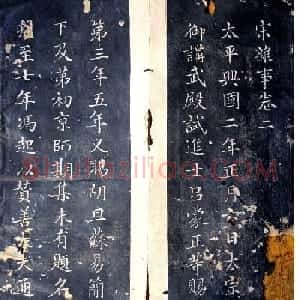 宋雜事卷二
太平興國二年正月 日太宗
御講武殿試進士呂蒙正等賜
第三年五年又賜胡旦蘇易簡
下及第初京師期集未有題名
至 年馮起 贊善大夫通